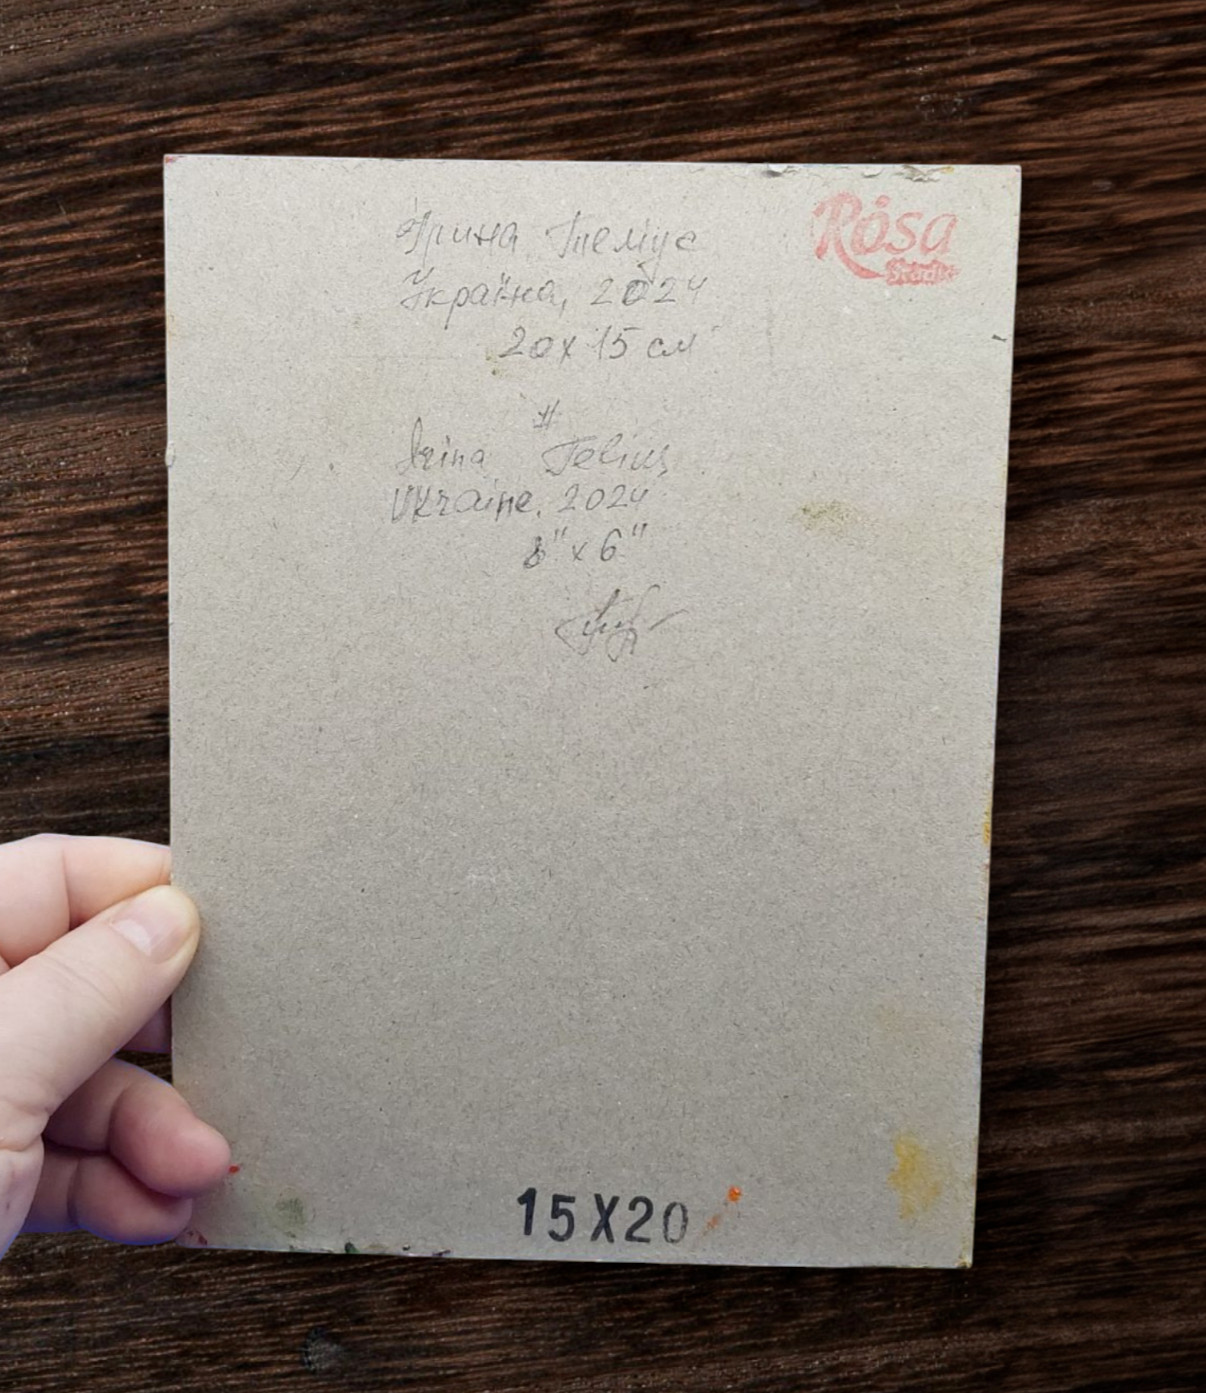 Ірина Теліус
Rosa
Studio
Україна, 2024
20 x 15 см
//
Irina Telius
Ukraine, 2024
8" x 6"
15X20